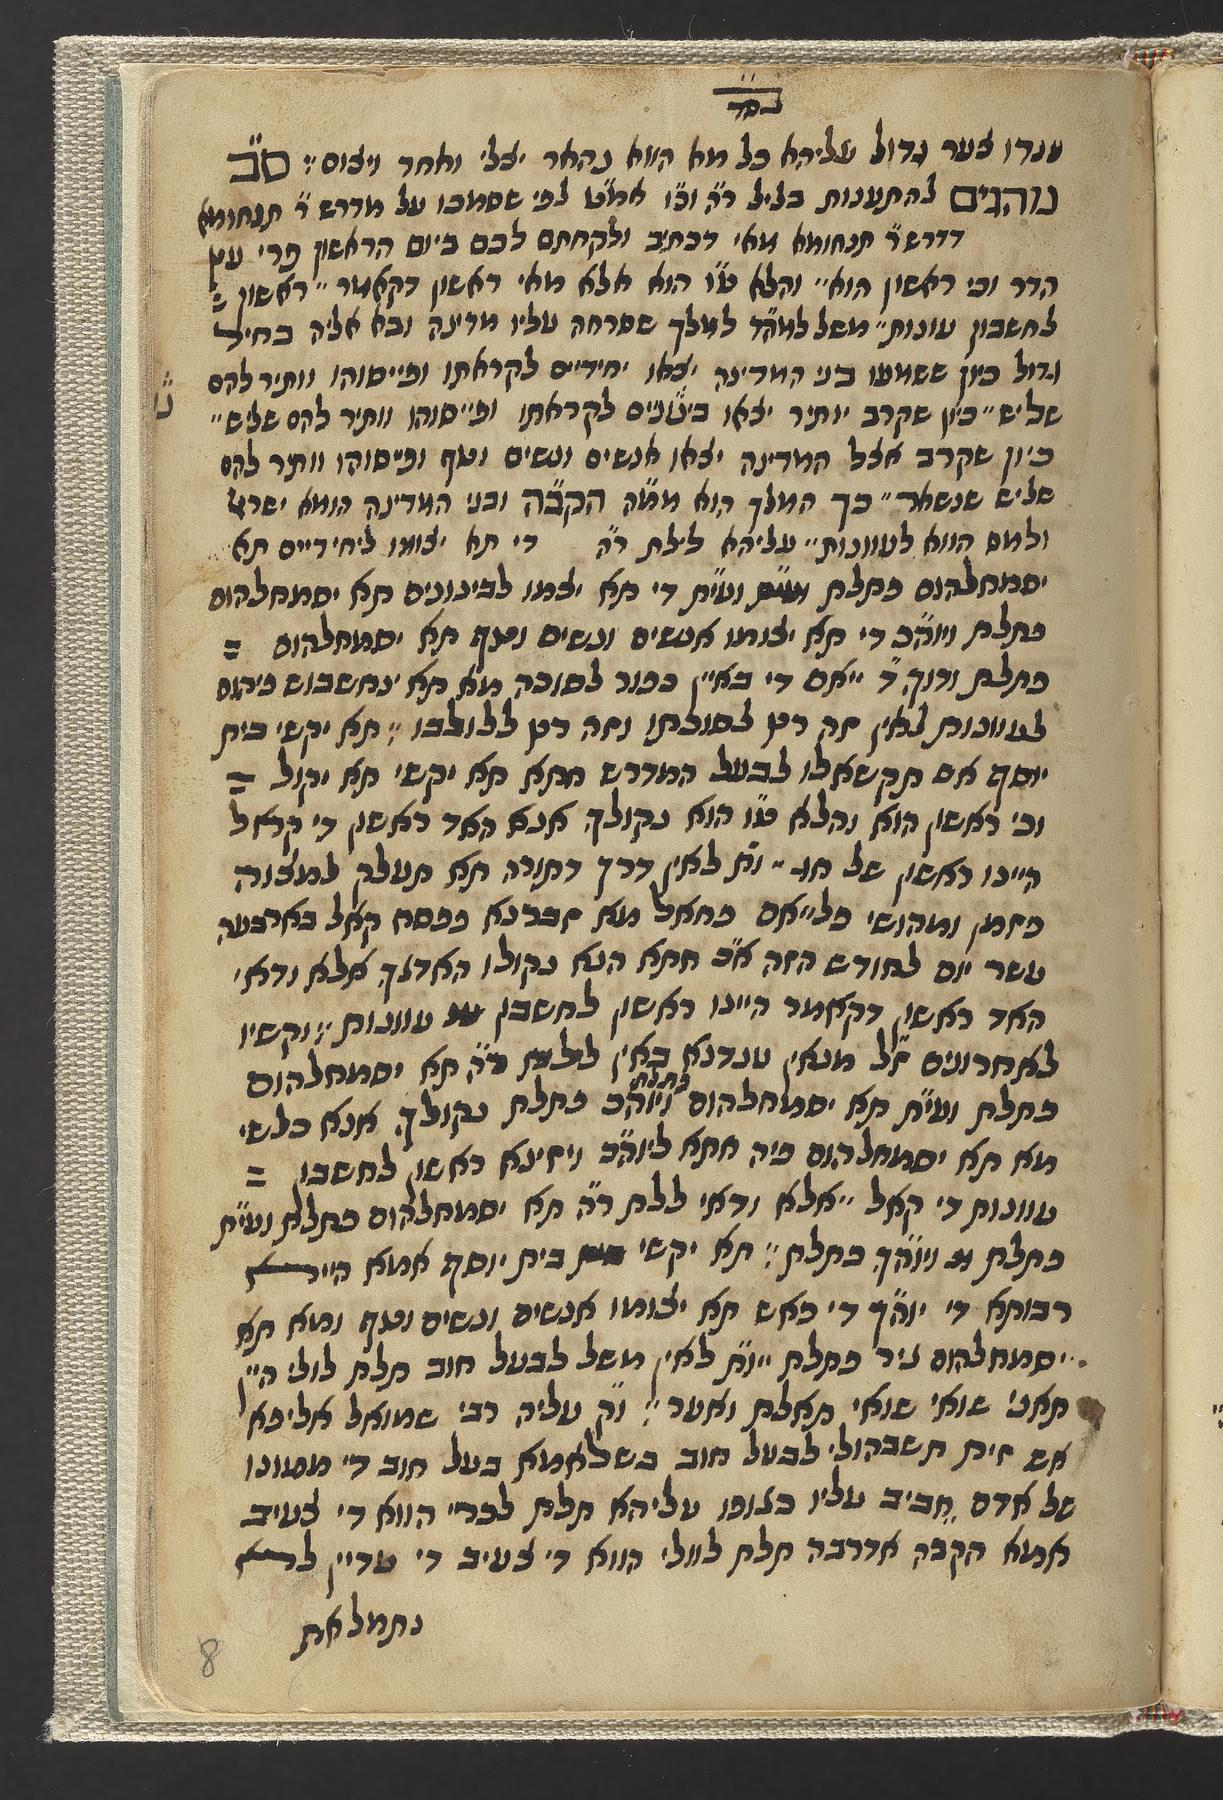 בסד
ענדו צער גדול עליהא כל מא הווא נהאר יצלי ואחד ויצום׃ ס״ב
נוהגים להתענות בליל ר״ה וכו׳ אמ״ט לפי שסמכו על מדרש ר׳ תנחומא
דדרש ר׳ תנחומא מאי דכתיב ולקחתם לכם ביום הראשון פרי עץ
הדר וכי ראשון הוא״ והלא ט״ו הוא אלא מאי ראשון דקאמר ״ראשון
לחשבון עונות״ משל למה״ד למלך שסרחה עליו מדינה ובא אליה בחיל
גדול כיון ששמעו בני המדינה יצאו יחידיים לקראתו ופייסוהו וותיר להם
שליש״ כיון שקרב יותיר יצאו בינונים לקראתו ופייסוהו וותיר להם שליש״
כיון שקרב אצל המדינה יצאו אנשים ונשים וטף ופייסוהו וותר להם
שליש שנשאר״ כך המלך הוא ממ״ה הקב״ה ובני המדינה הומא ישראל
ולמס הווא לעוונות״ עליהא לילת ר״ה די תא יצומו ליחידיים תא
יסמחלהום פתלת וע״ת די תא יצמו לבינונים תא יסמחלהום
פתלת ויוה״כ די תא יצומו אנשים ונשים וטף תא יסמחלהום
פתלת ודוך ד׳ ייאם די באיין כפור לסוכה מא תא ינחשבוש פיהום
לעוונות לאין זה רץ לסוכתו וזה רץ ללולבו׃ תא יקשי בית
יוסף אם תקשאלו לבעל המדרש חתא תא יקשי תא יקול
וכי ראשון הוא והלא ט״ו הוא נקולך אנא האד ראשון די קראל
היינו ראשון של חג״ ות׳ לאין דרך דתורה תא תעלק למצוה
פזמן ומהושי פלייאם פחאל מא זברנא פפסח קאל בארבעה
עשר יום לחודש הזה א״כ חתא הנא נקולו האדאך אלא ודאי
האד ראשון דקאמר היינו ראשון לחשבון עוונות׃ וקשיו
לאחרונים ז״ל מנאין ענדנא באין ללת ר״ה תא יסמחלהום
פתלת וע״ת תא יסמחלהום פתלת ויוה״כ פתלת נקולך אנא כלשי
מא תא יסמחלהום פיה חתא ליוה״כ ויזינא ראשון לחשבון
עוונות די קאל ״אלא ודאי ללת ר״ה תא יסמחלהום פתלת וע״ת
פתלת ויוה״ך פתלת׃ תא יקשי בית יוסף אמא היירא
רבותא די יוה״ך די פאש תא יצומו אנשים ונשים וטף ומא תא
יסמחלהום גיר פתלת ״ות׳ לאין משל לבעל חוב תלת לולי היין
תאני שואי שואי תאלת ואער׃ וק׳ עליה רבי שמואל אליפא
אש זית תשבהולי לבעל חוב בשלאמא בעל חוב די ממונו
של אדם חביב עליו כגופו עליהא תלת לכרי הווא די צעיב
אמא הקב״ה אדרבה תלת לוולי הווא די צעיב די עדיין לרא
נתמלאת
8